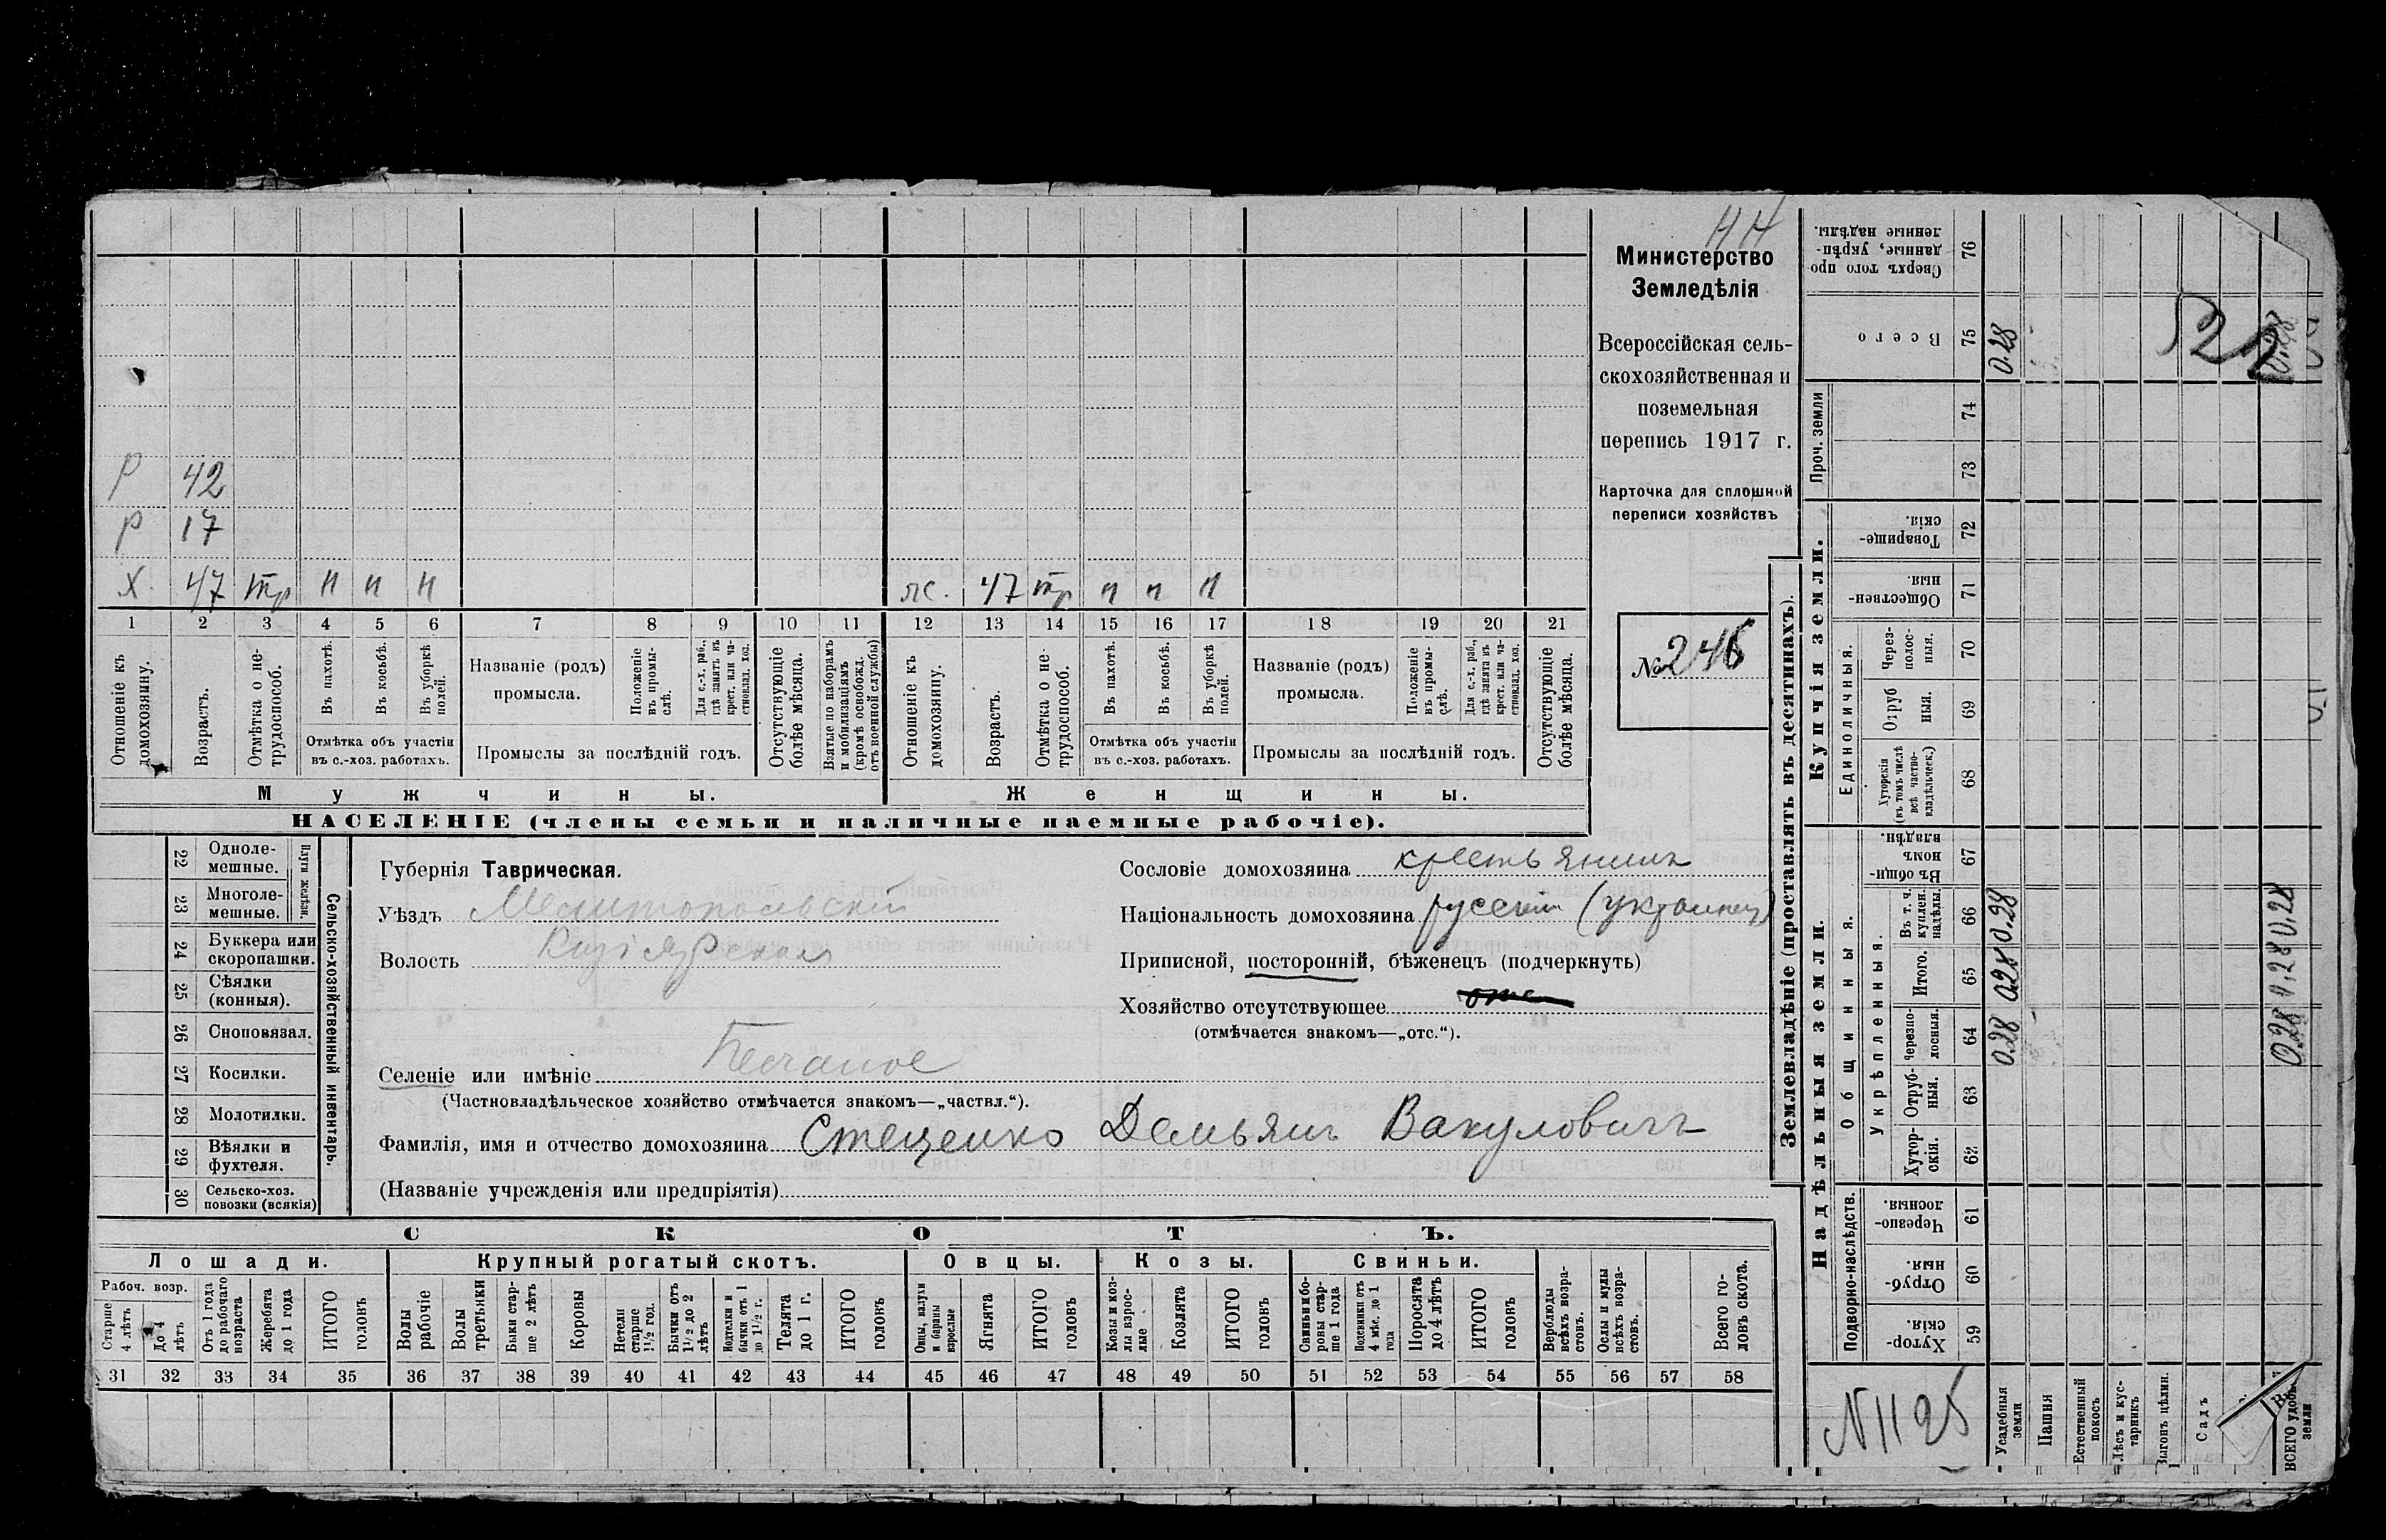 НН
Министерство
Земледѣлія
Всероссійская сель-
скохозяйственная и
поземельная
перепись 1917 г.
Карточка для сплошной
переписи хозяйствъ
№ 246
Р 42
Р 17
Х. 47 тр п п п ж. 47 тр п п п
1 2 3 4 5 6 7 8 9 10 11 12 13 14 15 16 17 18 19 20 21
Отношеніе къ домохозяину.
Возрастъ.
Отмѣтка о не-трудоспособ.
Въ пахотѣ.
Въ косьбѣ.
Въ уборкѣ полей.
Отмѣтка объ участіи
въ с.-хоз. работахъ.
Названіе (родъ)
промысла.
Положеніе въ промы-слѣ.
Для с.-х. раб., гдѣ занятъ въ крест. или ча-стновлад. хоз.
Промыслы за послѣдній годъ.
Отсутствующіе болѣе мѣсяца.
Взятые по наборамъ и мобилизаціямъ (кромѣ освобожд. отъ военной службы)
Отношеніе къ домохозяину.
Возрастъ.
Отмѣтка о не-трудоспособ.
Въ пахотѣ.
Въ косьбѣ.
Въ уборкѣ полей.
Отмѣтка объ участіи
въ с.-хоз. работахъ.
Названіе (родъ)
промысла.
Положеніе въ промы-слѣ.
Для с.-х. раб., гдѣ занята въ крест. или ча-стновлад. хоз.
Промыслы за послѣдній годъ.
Отсутствующіе болѣе мѣсяца.
Мужчины. Женщины.
НАСЕЛЕНІЕ (члены семьи и наличные наемные рабочіе).
22 Одноле-мешные.
23 Многоле-мешные.
Плуги желѣзн.
24 Буккера или скоропашки.
25 Сѣялки (конныя).
26 Сноповязал.
27 Косилки.
28 Молотилки.
29 Вѣялки и фухтеля.
30 Сельско-хоз. повозки (всякія)
Сельско-хозяйственный инвентарь.
Губернія Таврическая.
Уѣздъ Мелитопольскій
Волость
Селеніе или имѣніе Песчаное
(Частновладѣльческое хозяйство отмѣчается знакомъ—„частвл.“).
Фамилія, имя и отчество домохозяина Стеценко Демьянъ Вакуловичъ
(Названіе учрежденія или предпріятія)
Сословіе домохозяина крестьянинъ
Національность домохозяина русскій (украинец)
Приписной, посторонній, бѣженецъ (подчеркнуть)
Хозяйство отсутствующее
(отмѣчается знакомъ—„отс.“).
СКОТЪ.
Лошади. Крупный рогатый скотъ. Овцы. Козы. Свиньи.
Рабоч. возр.
Старше 4 лѣтъ
До 4 лѣтъ
Отъ 1 года до рабочаго возраста
Жеребята до 1 года
ИТОГО головъ
Волы рабочіе
Волы третьяки
Быки стар-ше 2 лѣтъ
Коровы
Нетели старше 1½ год.
Бычки отъ 1½ до 2 лѣтъ
Нетелки и бычки отъ 1 до 1½ г.
Телята до 1 г.
ИТОГО головъ
Овцы, валухи и бараны взрослые
Ягнята
ИТОГО головъ
Козы и коз-лы взрос-лые
Козлята
ИТОГО головъ
Свиньи и бо-ровы стар-ше 1 года
Подсвинки отъ 4 мѣс. до 1 года
Поросята до 4 лѣтъ
ИТОГО головъ
Верблюды всѣхъ возра-стовъ.
Ослы и мулы всѣхъ возра-стовъ.
Всего го-ловъ скота.
31 32 33 34 35 36 37 38 39 40 41 42 43 44 45 46 47 48 49 50 51 52 53 54 55 56 57 58
Землевладѣніе (проставлять въ десятинахъ).
Сверхъ того про-данные, укрѣп-ленные надѣлы. 76
Всего 75 0.28
Проч. земли 74
73
Купчія земли.
Товарище-скія. 72
Обществен-ныя. 71
Единоличныя.
Черезполос-ныя. 70
Отруб ныя. 69
Хуторскія (въ томъ числѣ всѣ частно-владѣльческ.) 68
Надѣльныя земли.
Общинныя.
Въ общи-номъ владѣн. 67
Укрѣпленныя.
Въ т. ч. куплен. надѣлы. 66 0.28
Итого. 65 0.28
Черезпо-лосныя. 64 0.28
Отруб-ныя. 63
Хутор-скія. 62
Подворно-наслѣдств.
Черезпо-лосныя. 61
Отруб-ныя. 60
Хутор-скія. 59
0.28 0,28 0,28
N 1125
Усадебныя земли
Пашня
Естественный покосъ
Лѣсъ и кус-тарникъ
Выгонъ цѣлин.
Садъ
ВСЕГО удобн. земли